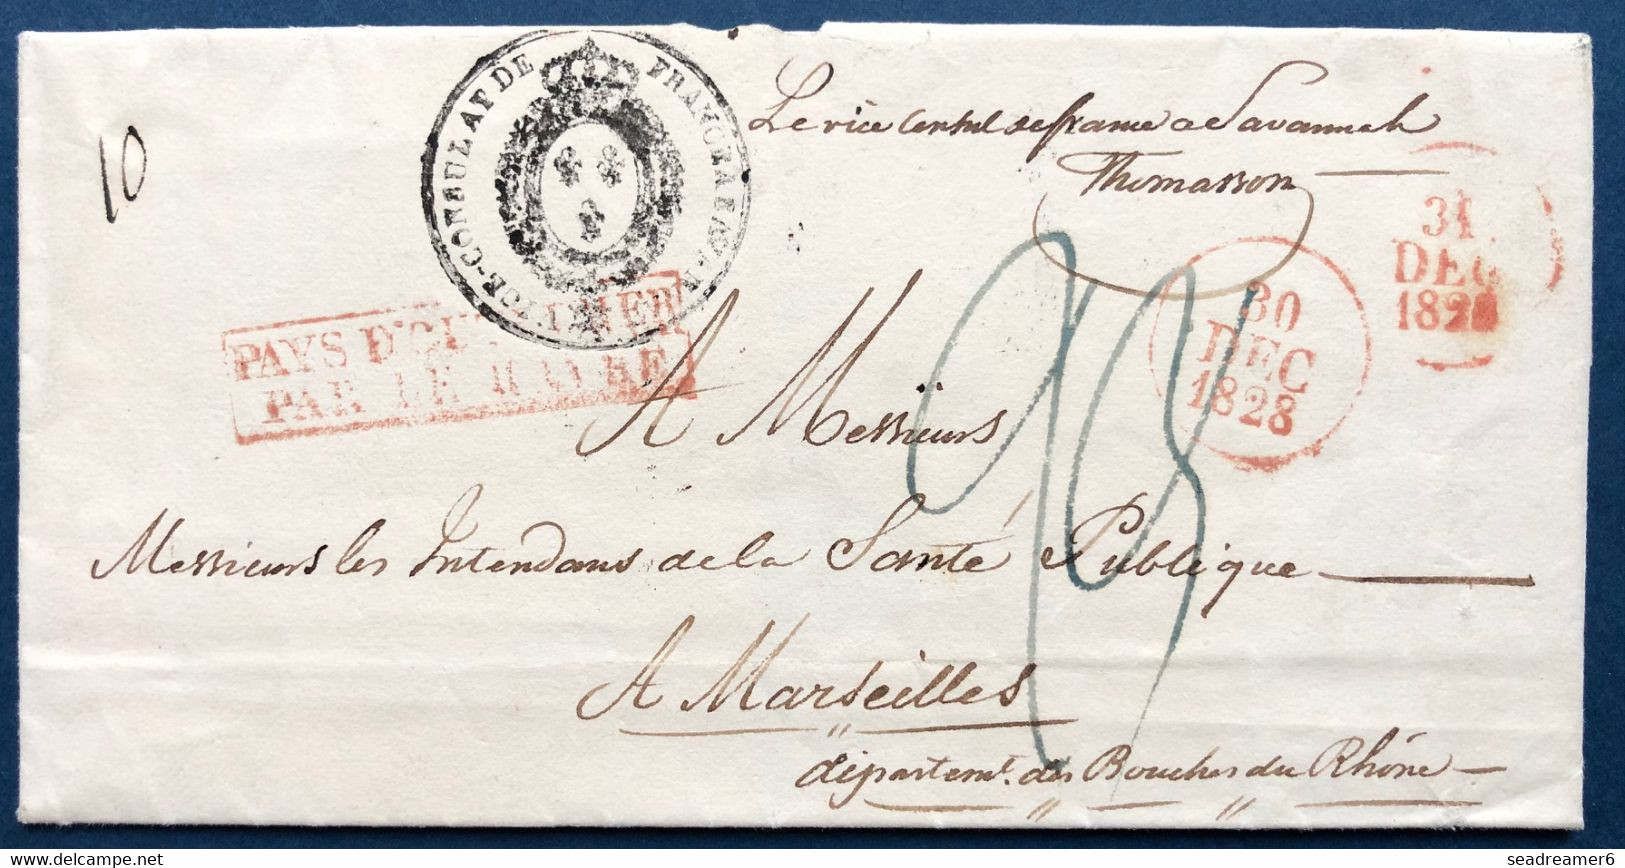 VICE-CONSULAT DE FRANCE A SAVANNAH
Le vice Consul de france a Savannah
Thomasson
10
31
DEC
1828
30
DEC
1828
PAYS D'OUTREMER
PAR LE HAVRE
A Messieurs
Messieurs les Intendans de la Santé Publique
A Marseilles
départemt. des Bouches du Rhône
www.delcampe.net
seadreamer6